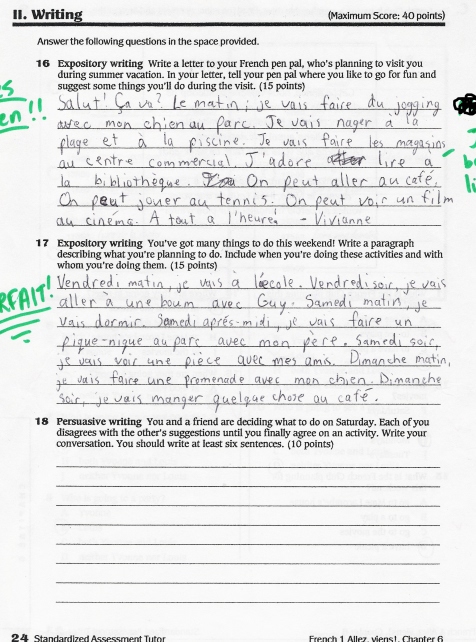 II. Writing (Maximum Score: 40 points)
Answer the following questions in the space provided.
16 Expository writing Write a letter to your French pen pal, who's planning to visit you
during summer vacation. In your letter, tell your pen pal where you like to go for fun and
suggest some things you'll do during the visit. (15 points)
Salut! Ça va? Le matin, je vais faire du jogging
avec mon chien au parc. Je vais nager à la
plage et à la piscine. Je vais faire les magasins
au centre commercial. J'adore lire à
la bibliothèque. On peut aller au café.
On peut jouer au tennis. On peut voir un film
au cinéma. A tout a l'heure! - Vivianne
17 Expository writing You've got many things to do this weekend! Write a paragraph
describing what you're planning to do. Include when you're doing these activities and with
whom you're doing them. (15 points)
RFAIT!
Vendredi matin, je vais à l'école. Vendredi soir, je vais
aller à une boum avec Guy. Samedi matin, je
vais dormir. Samedi après-midi, je vais faire un
pique-nique au parc avec mon père. Samedi soir,
je vais voir une pièce avec mes amis. Dimanche matin,
je vais faire une promenade avec mon chien. Dimanche
soir, je vais manger quelque chose au café.
18 Persuasive writing You and a friend are deciding what to do on Saturday. Each of you
disagrees with the other's suggestions until you finally agree on an activity. Write your
conversation. You should write at least six sentences. (10 points)
24 Standardized Assessment Tutor French 1 Allez, viens!, Chapter 6